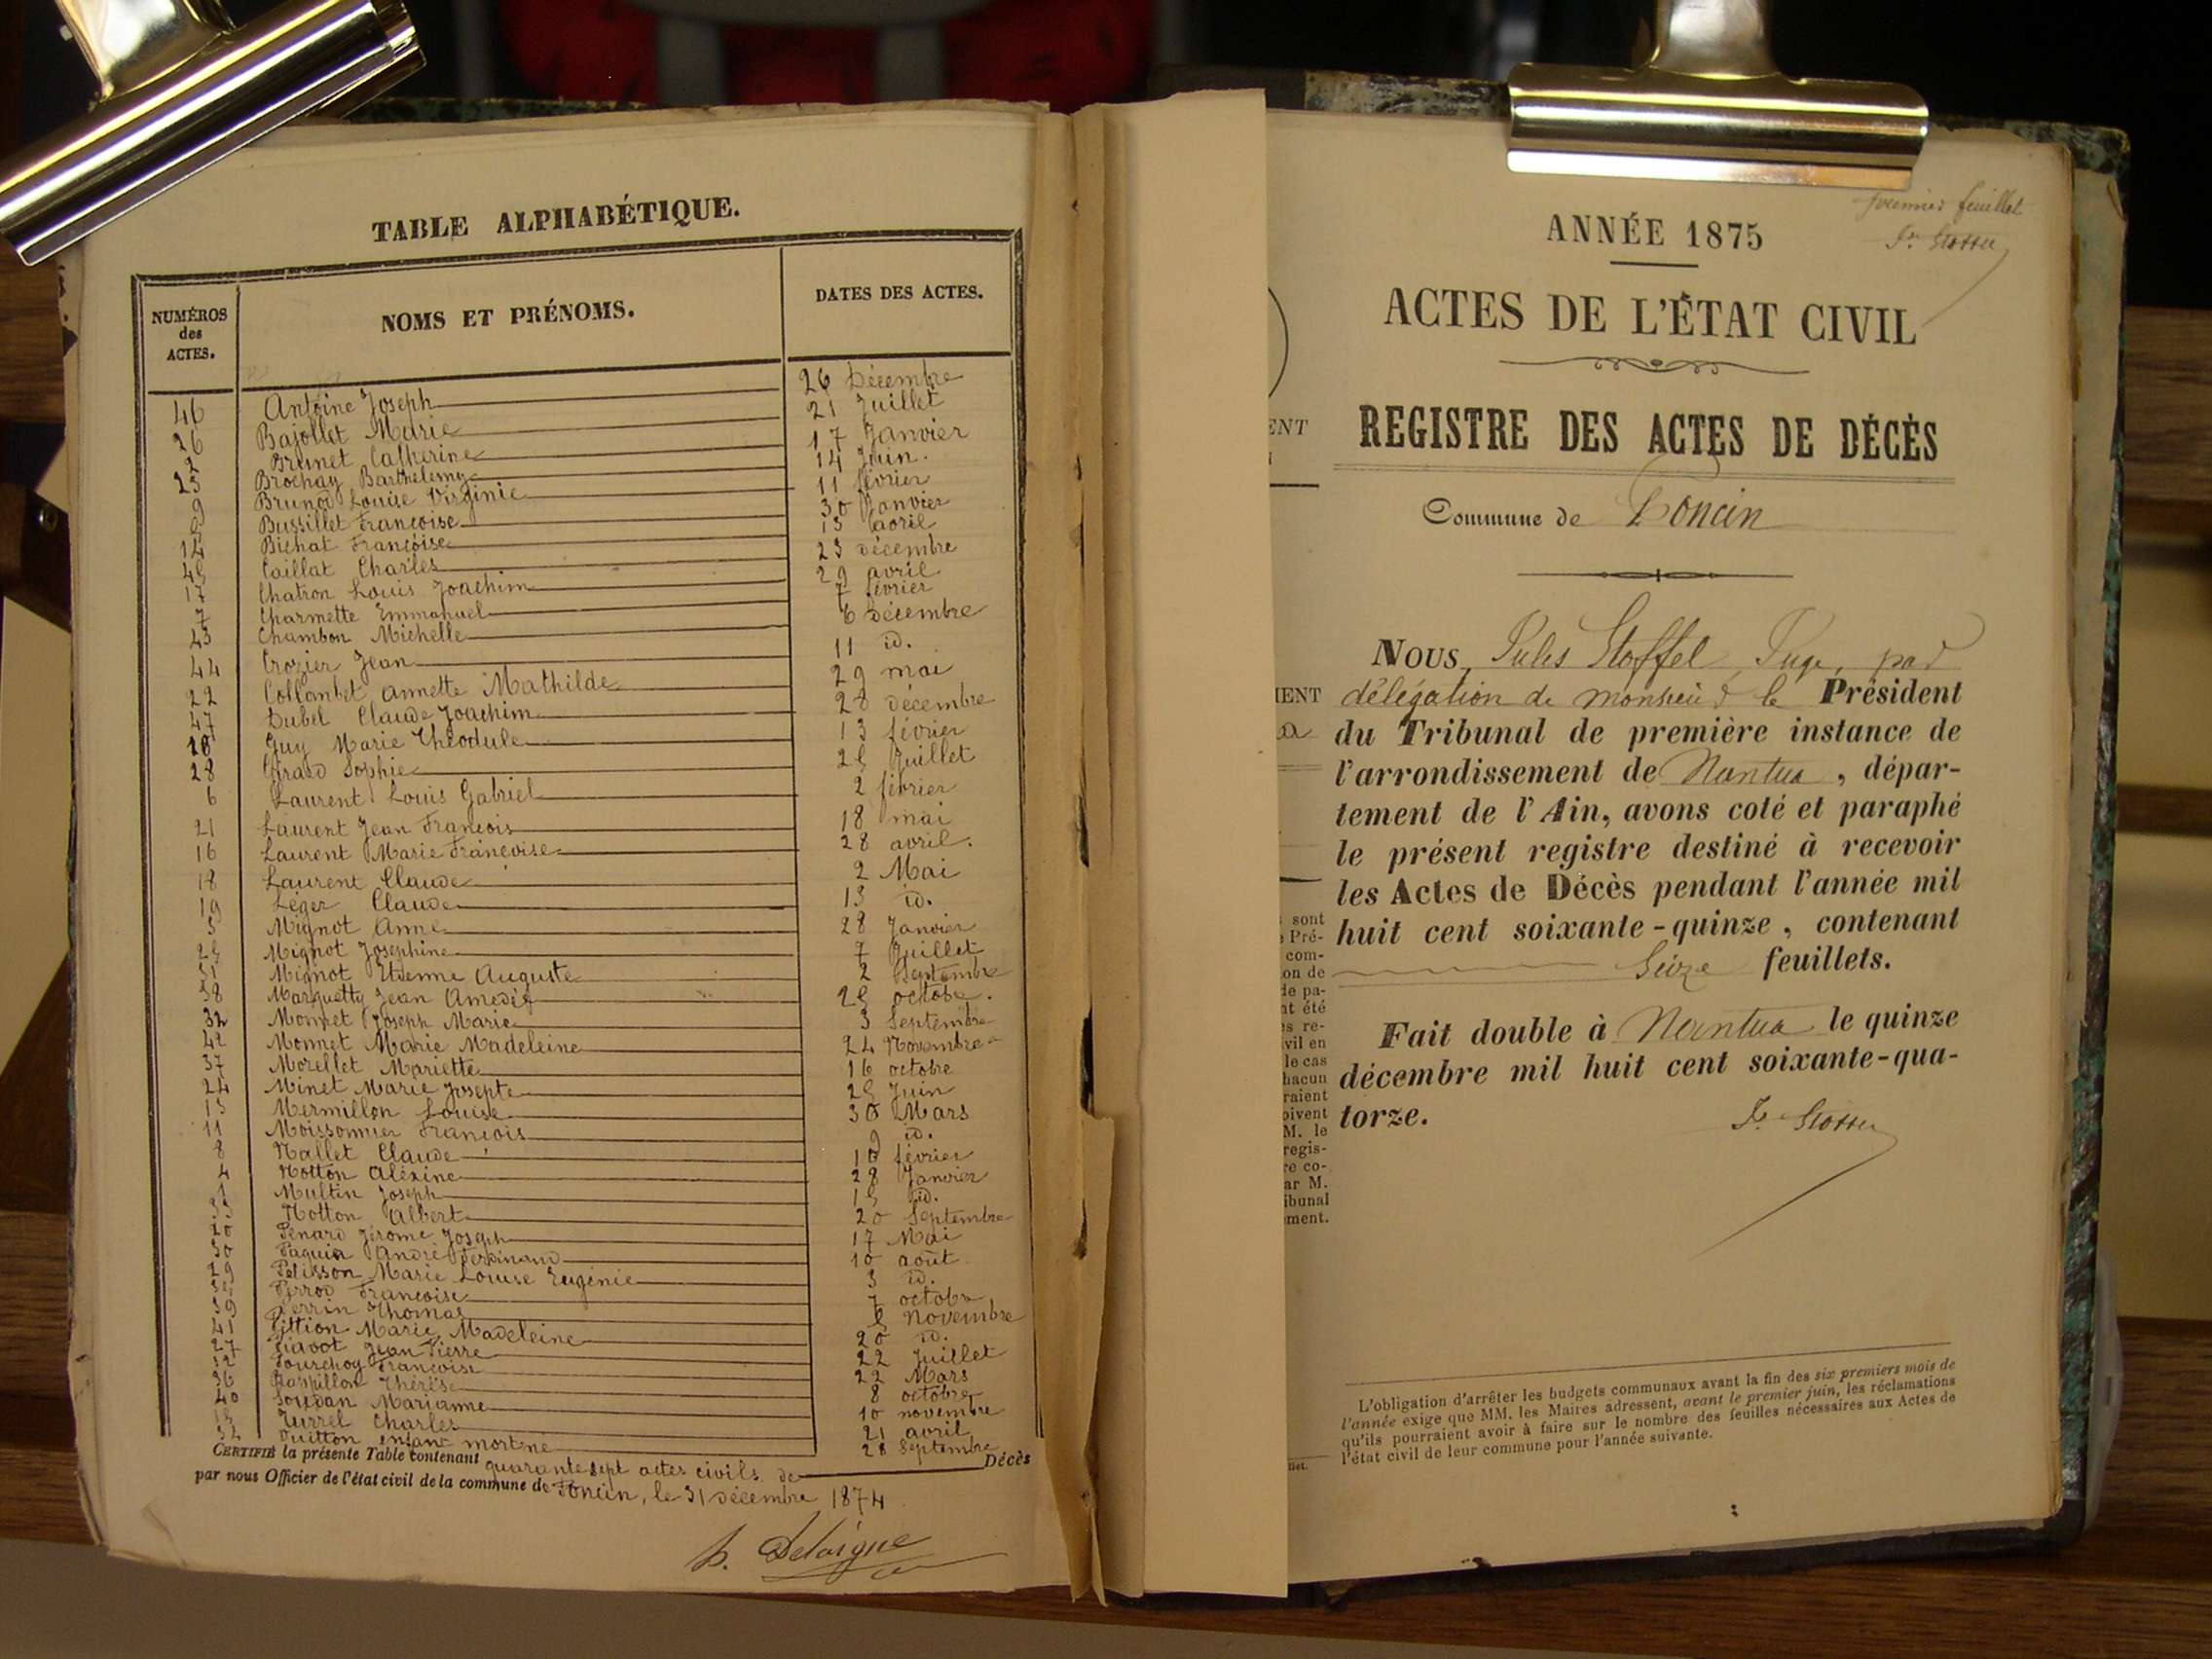 TABLE ALPHABÉTIQUE.
NUMÉROS des ACTES.
NOMS ET PRÉNOMS.
DATES DES ACTES.
46 Antoine Joseph 26 Décembre
26 Bajollet Marie 21 Juillet
2 Brunet Catherine 17 Janvier
23 Brochay Barthélemy 14 Juin.
9 Brunod Louise Virginie 11 février
Bussillet Françoise 30 Janvier
14 Bichat Françoise 13 avril
45 Caillat Charles 23 décembre
17 Chatron Louis Joachim 29 avril
7 Charmette Emmanuel 7 février
43 Chambon Michelle 6 Décembre
44 Crozier Jean 11 id.
22 Collombet annette Mathilde 29 mai
47 Dubel Claude Joachim 28 décembre
10 Guy Marie Théodule 13 février
28 Girard Sophie 25 Juillet
6 Laurent Louis Gabriel 2 février
21 Laurent Jean François 18 mai
16 Laurent Marie Françoise 28 avril.
18 Laurent Claude 2 Mai
19 Léger Claude 13 id.
5 Mignot Anne 28 Janvier
25 Mignot Josephine 7 Juillet
31 Mignot Etienne Auguste 2 Septembre
38 Marquetty Jean Amedée 25 octobre.
32 Monnet Joseph Marie 3 Septembre
42 Monnet Marie Madeleine 24 Novembre
37 Morellet Mariette 16 octobre
24 Minet Marie Josepte 25 Juin
13 Mermillon Louise 30 Mars
11 Moissonnier François 9 id.
8 Nallet Claude février
4 Notton Aléxine 28 Janvier
1 Multin Joseph 15 id.
33 Notton Albert 20 Septembre
20 Penard Jérome Joseph 17 Mai
30 Paquin André Ferdinand 10 août
29 Pelisson Marie Louise Eugénie 3 id.
35 Perrod Françoise 7 octobre
39 Perrin Thomas novembre
41 Pittion Marie Madeleine 20 id.
27 Jean Pierre 22 Juillet
12 Pourchoy Françoise 22 Mars
36 Raspillon Thérèse 8 octobre
40 Soudan Marianne 10 novembre
15 Turrel Charles 21 avril
34 Vuitton enfant mort né 28 Septembre
CERTIFIÉ la présente Table contenant quarante sept actes civils de Décès
par nous Officier de l'état civil de la commune de Poncin, le 31 décembre 1874
Delaigue
premier feuillet
ANNÉE 1875
ACTES DE L'ÉTAT CIVIL
REGISTRE DES ACTES DE DÉCÈS
Commune de Poncin
NOUS, Jules Stoffel, Juge, par
délégation de monsieur le Président
du Tribunal de première instance de
l'arrondissement de Nantua, dépar-
tement de l'Ain, avons coté et paraphé
le présent registre destiné à recevoir
les Actes de Décès pendant l'année mil
huit cent soixante-quinze, contenant
Seize feuillets.
Fait double à Nantua le quinze
décembre mil huit cent soixante-qua-
torze.
L'obligation d'arrêter les budgets communaux avant la fin des six premiers mois de
l'année exige que MM. les Maires adressent, avant le premier juin, les réclamations
qu'ils pourraient avoir à faire sur le nombre des feuilles nécessaires aux Actes de
l'état civil de leur commune pour l'année suivante.
ENT
MENT
sont
Pré-
com-
on de
de pa-
nt été
es re-
vil en
le cas
hacun
raient
oivent
M. le
regis-
re co-
ar M.
ibunal
ment.